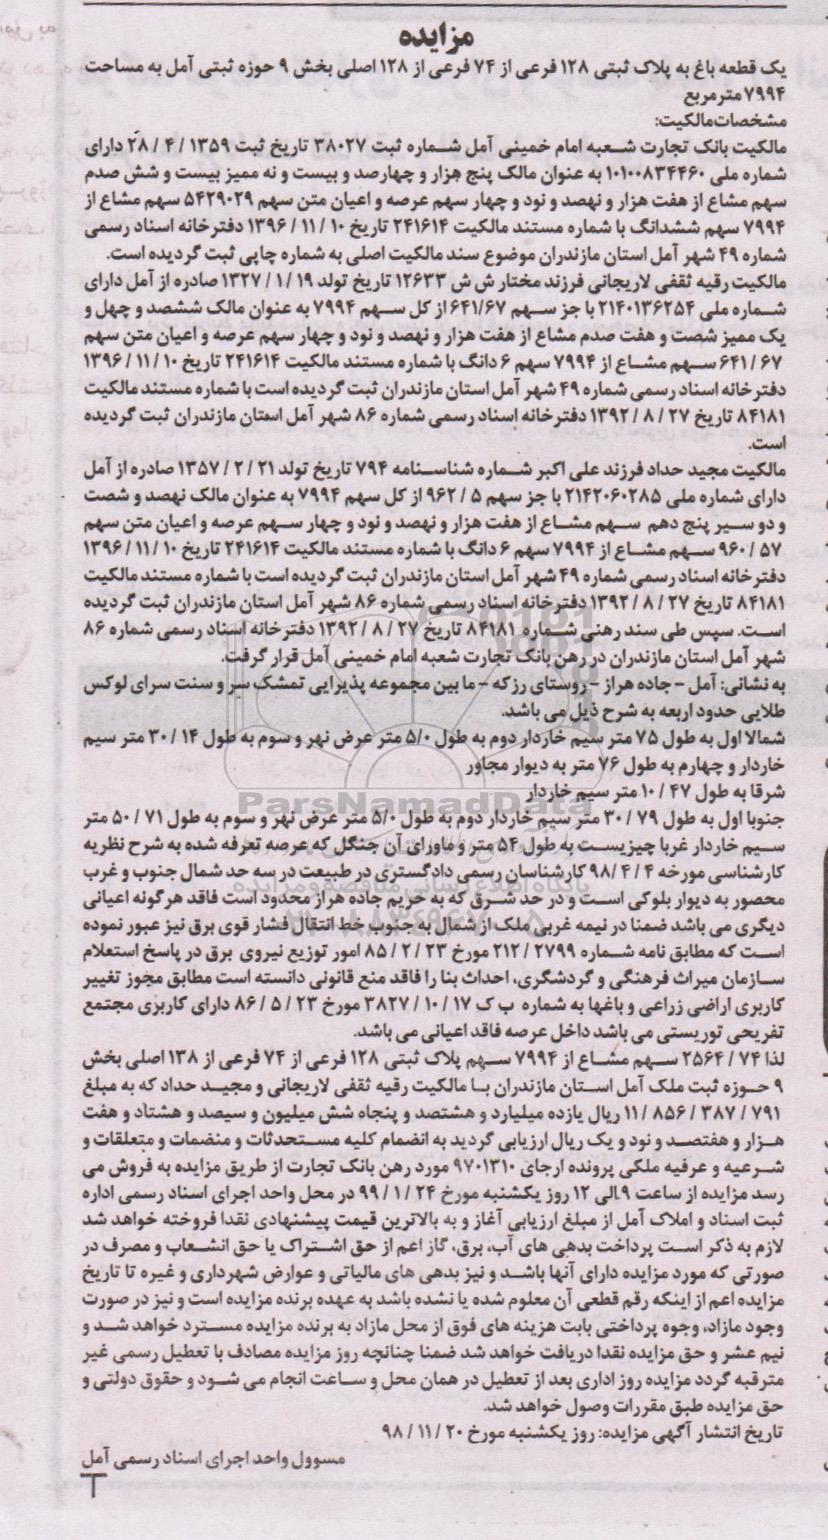 مزایده
یک قطعه باغ به پلاک ثبتی ۱۲۸ فرعی از ۷۴ فرعی از ۱۲۸ اصلی بخش ۹ حوزه ثبتی آمل به مساحت
۷۹۹۴ مترمربع
مشخصات مالکیت:
مالکیت بانک تجارت شعبه امام خمینی آمل شماره ثبت ۳۸۰۲۷ تاریخ ثبت ۱۳۵۹ / ۴ / ۲۸ دارای
شماره ملی ۱۰۱۰۰۸۳۴۴۶۰ به عنوان مالک پنج هزار و چهارصد و بیست و نه ممیز بیست و شش صدم
سهم مشاع از هفت هزار و نهصد و نود و چهار سهم عرصه و اعیان متن سهم ۵۴۲۹۰۲۹ سهم مشاع از
۷۹۹۴ سهم ششدانگ با شماره مستند مالکیت ۲۴۱۶۱۴ تاریخ ۱۰ / ۱۱ / ۱۳۹۶ دفترخانه اسناد رسمی
شماره ۴۹ شهر آمل استان مازندران موضوع سند مالکیت اصلی به شماره چاپی ثبت گردیده است.
مالکیت رقیه ثقفی لاریجانی فرزند مختار ش ش ۱۲۶۳۳ تاریخ تولد ۱۹ / ۱ / ۱۳۲۷ صادره از آمل دارای
شماره ملی ۲۱۴۰۱۳۶۲۵۴ با جز سهم ۶۴۱/۶۷ از کل سهم ۷۹۹۴ به عنوان مالک ششصد و چهل و
یک ممیز شصت و هفت صدم مشاع از هفت هزار و نهصد و نود و چهار سهم عرصه و اعیان متن سهم
۶۴۱ / ۶۷ سهم مشاع از ۷۹۹۴ سهم ۶ دانگ با شماره مستند مالکیت ۲۴۱۶۱۴ تاریخ ۱۰ / ۱۱ / ۱۳۹۶
دفترخانه اسناد رسمی شماره ۴۹ شهر آمل استان مازندران ثبت گردیده است با شماره مستند مالکیت
۸۴۱۸۱ تاریخ ۲۷ / ۸ / ۱۳۹۲ دفترخانه اسناد رسمی شماره ۸۶ شهر آمل استان مازندران ثبت گردیده
است.
مالکیت مجید حداد فرزند علی اکبر شماره شناسنامه ۷۹۴ تاریخ تولد ۲۱ / ۲ / ۱۳۵۷ صادره از آمل
دارای شماره ملی ۲۱۴۲۰۶۰۲۸۵ با جز سهم ۵ / ۹۶۲ از کل سهم ۷۹۹۴ به عنوان مالک نهصد و شصت
و دو سیر پنج دهم سهم مشاع از هفت هزار و نهصد و نود و چهار سهم عرصه و اعیان متن سهم
۹۶۰ / ۵۷ سهم مشاع از ۷۹۹۴ سهم ۶ دانگ با شماره مستند مالکیت ۲۴۱۶۱۴ تاریخ ۱۰ / ۱۱ / ۱۳۹۶
دفترخانه اسناد رسمی شماره ۴۹ شهر آمل استان مازندران ثبت گردیده است با شماره مستند مالکیت
۸۴۱۸۱ تاریخ ۲۷ / ۸ / ۱۳۹۲ دفترخانه اسناد رسمی شماره ۸۶ شهر آمل استان مازندران ثبت گردیده
است. سپس طی سند رهنی شماره ۸۴۱۸۱ تاریخ ۲۷ / ۸ / ۱۳۹۲ دفترخانه اسناد رسمی شماره ۸۶
شهر آمل استان مازندران در رهن بانک تجارت شعبه امام خمینی آمل قرار گرفت.
به نشانی: آمل - جاده هراز - روستای رزکه - ما بین مجموعه پذیرایی تمشک سر و سنت سرای لوکس
طلایی حدود اربعه به شرح ذیل می باشد.
شمالا اول به طول ۷۵ متر سیم خاردار دوم به طول ۵/۰ متر عرض نهر و سوم به طول ۱۴ / ۳۰ متر سیم
خاردار و چهارم به طول ۷۶ متر به دیوار مجاور
شرقا به طول ۴۷ / ۱۰ متر سیم خاردار
جنوبا اول به طول ۷۹ / ۳۰ متر سیم خاردار دوم به طول ۵/۰ متر عرض نهر و سوم به طول ۷۱ / ۵۰ متر
سیم خاردار غربا چیزیست به طول ۵۴ متر و ماورای آن جنگل که عرصه تعرفه شده به شرح نظریه
کارشناسی مورخه ۴ / ۴ / ۹۸ کارشناسان رسمی دادگستری در طبیعت در سه حد شمال جنوب و غرب
محصور به دیوار بلوکی است و در حد شرق که به حریم جاده هراز محدود است فاقد هرگونه اعیانی
دیگری می باشد ضمنا در نیمه غربی ملک از شمال به جنوب خط انتقال فشار قوی برق نیز عبور نموده
است که مطابق نامه شماره ۲۷۹۹ / ۲۱۲ مورخ ۲۳ / ۲ / ۸۵ امور توزیع نیروی برق در پاسخ استعلام
سازمان میراث فرهنگی و گردشگری، احداث بنا را فاقد منع قانونی دانسته است مطابق مجوز تغییر
کاربری اراضی زراعی و باغها به شماره ب ک ۱۷ / ۱۰ / ۳۸۲۷ مورخ ۲۳ / ۵ / ۸۶ دارای کاربری مجتمع
تفریحی توریستی می باشد داخل عرصه فاقد اعیانی می باشد.
لذا ۷۴ / ۲۵۶۴ سهم مشاع از ۷۹۹۴ سهم پلاک ثبتی ۱۲۸ فرعی از ۷۴ فرعی از ۱۳۸ اصلی بخش
۹ حوزه ثبت ملک آمل استان مازندران با مالکیت رقیه ثقفی لاریجانی و مجید حداد که به مبلغ
۷۹۱ / ۳۸۷ / ۸۵۶ / ۱۱ ریال یازده میلیارد و هشتصد و پنجاه شش میلیون و سیصد و هشتاد و هفت
هزار و هفتصد و نود و یک ریال ارزیابی گردید به انضمام کلیه مستحدثات و منضمات و متعلقات و
شرعیه و عرفیه ملکی پرونده ارجای ۹۷۰۱۳۱۰ مورد رهن بانک تجارت از طریق مزایده به فروش می
رسد مزایده از ساعت ۹ الی ۱۲ روز یکشنبه مورخ ۲۴ / ۱ / ۹۹ در محل واحد اجرای اسناد رسمی اداره
ثبت اسناد و املاک آمل از مبلغ ارزیابی آغاز و به بالاترین قیمت پیشنهادی نقدا فروخته خواهد شد
لازم به ذکر است پرداخت بدهی های آب، برق، گاز اعم از حق اشتراک یا حق انشعاب و مصرف در
صورتی که مورد مزایده دارای آنها باشد و نیز بدهی های مالیاتی و عوارض شهرداری و غیره تا تاریخ
مزایده اعم از اینکه رقم قطعی آن معلوم شده یا نشده باشد به عهده برنده مزایده است و نیز در صورت
وجود مازاد، وجوه پرداختی بابت هزینه های فوق از محل مازاد به برنده مزایده مسترد خواهد شد و
نیم عشر و حق مزایده نقدا دریافت خواهد شد ضمنا چنانچه روز مزایده مصادف با تعطیل رسمی غیر
مترقبه گردد مزایده روز اداری بعد از تعطیل در همان محل و ساعت انجام می شود و حقوق دولتی و
حق مزایده طبق مقررات وصول خواهد شد.
تاریخ انتشار آگهی مزایده: روز یکشنبه مورخ ۲۰ / ۱۱ / ۹۸
مسوول واحد اجرای اسناد رسمی آمل
ParsNamadData
پایگاه اطلاع رسانی مناقصه و مزایده